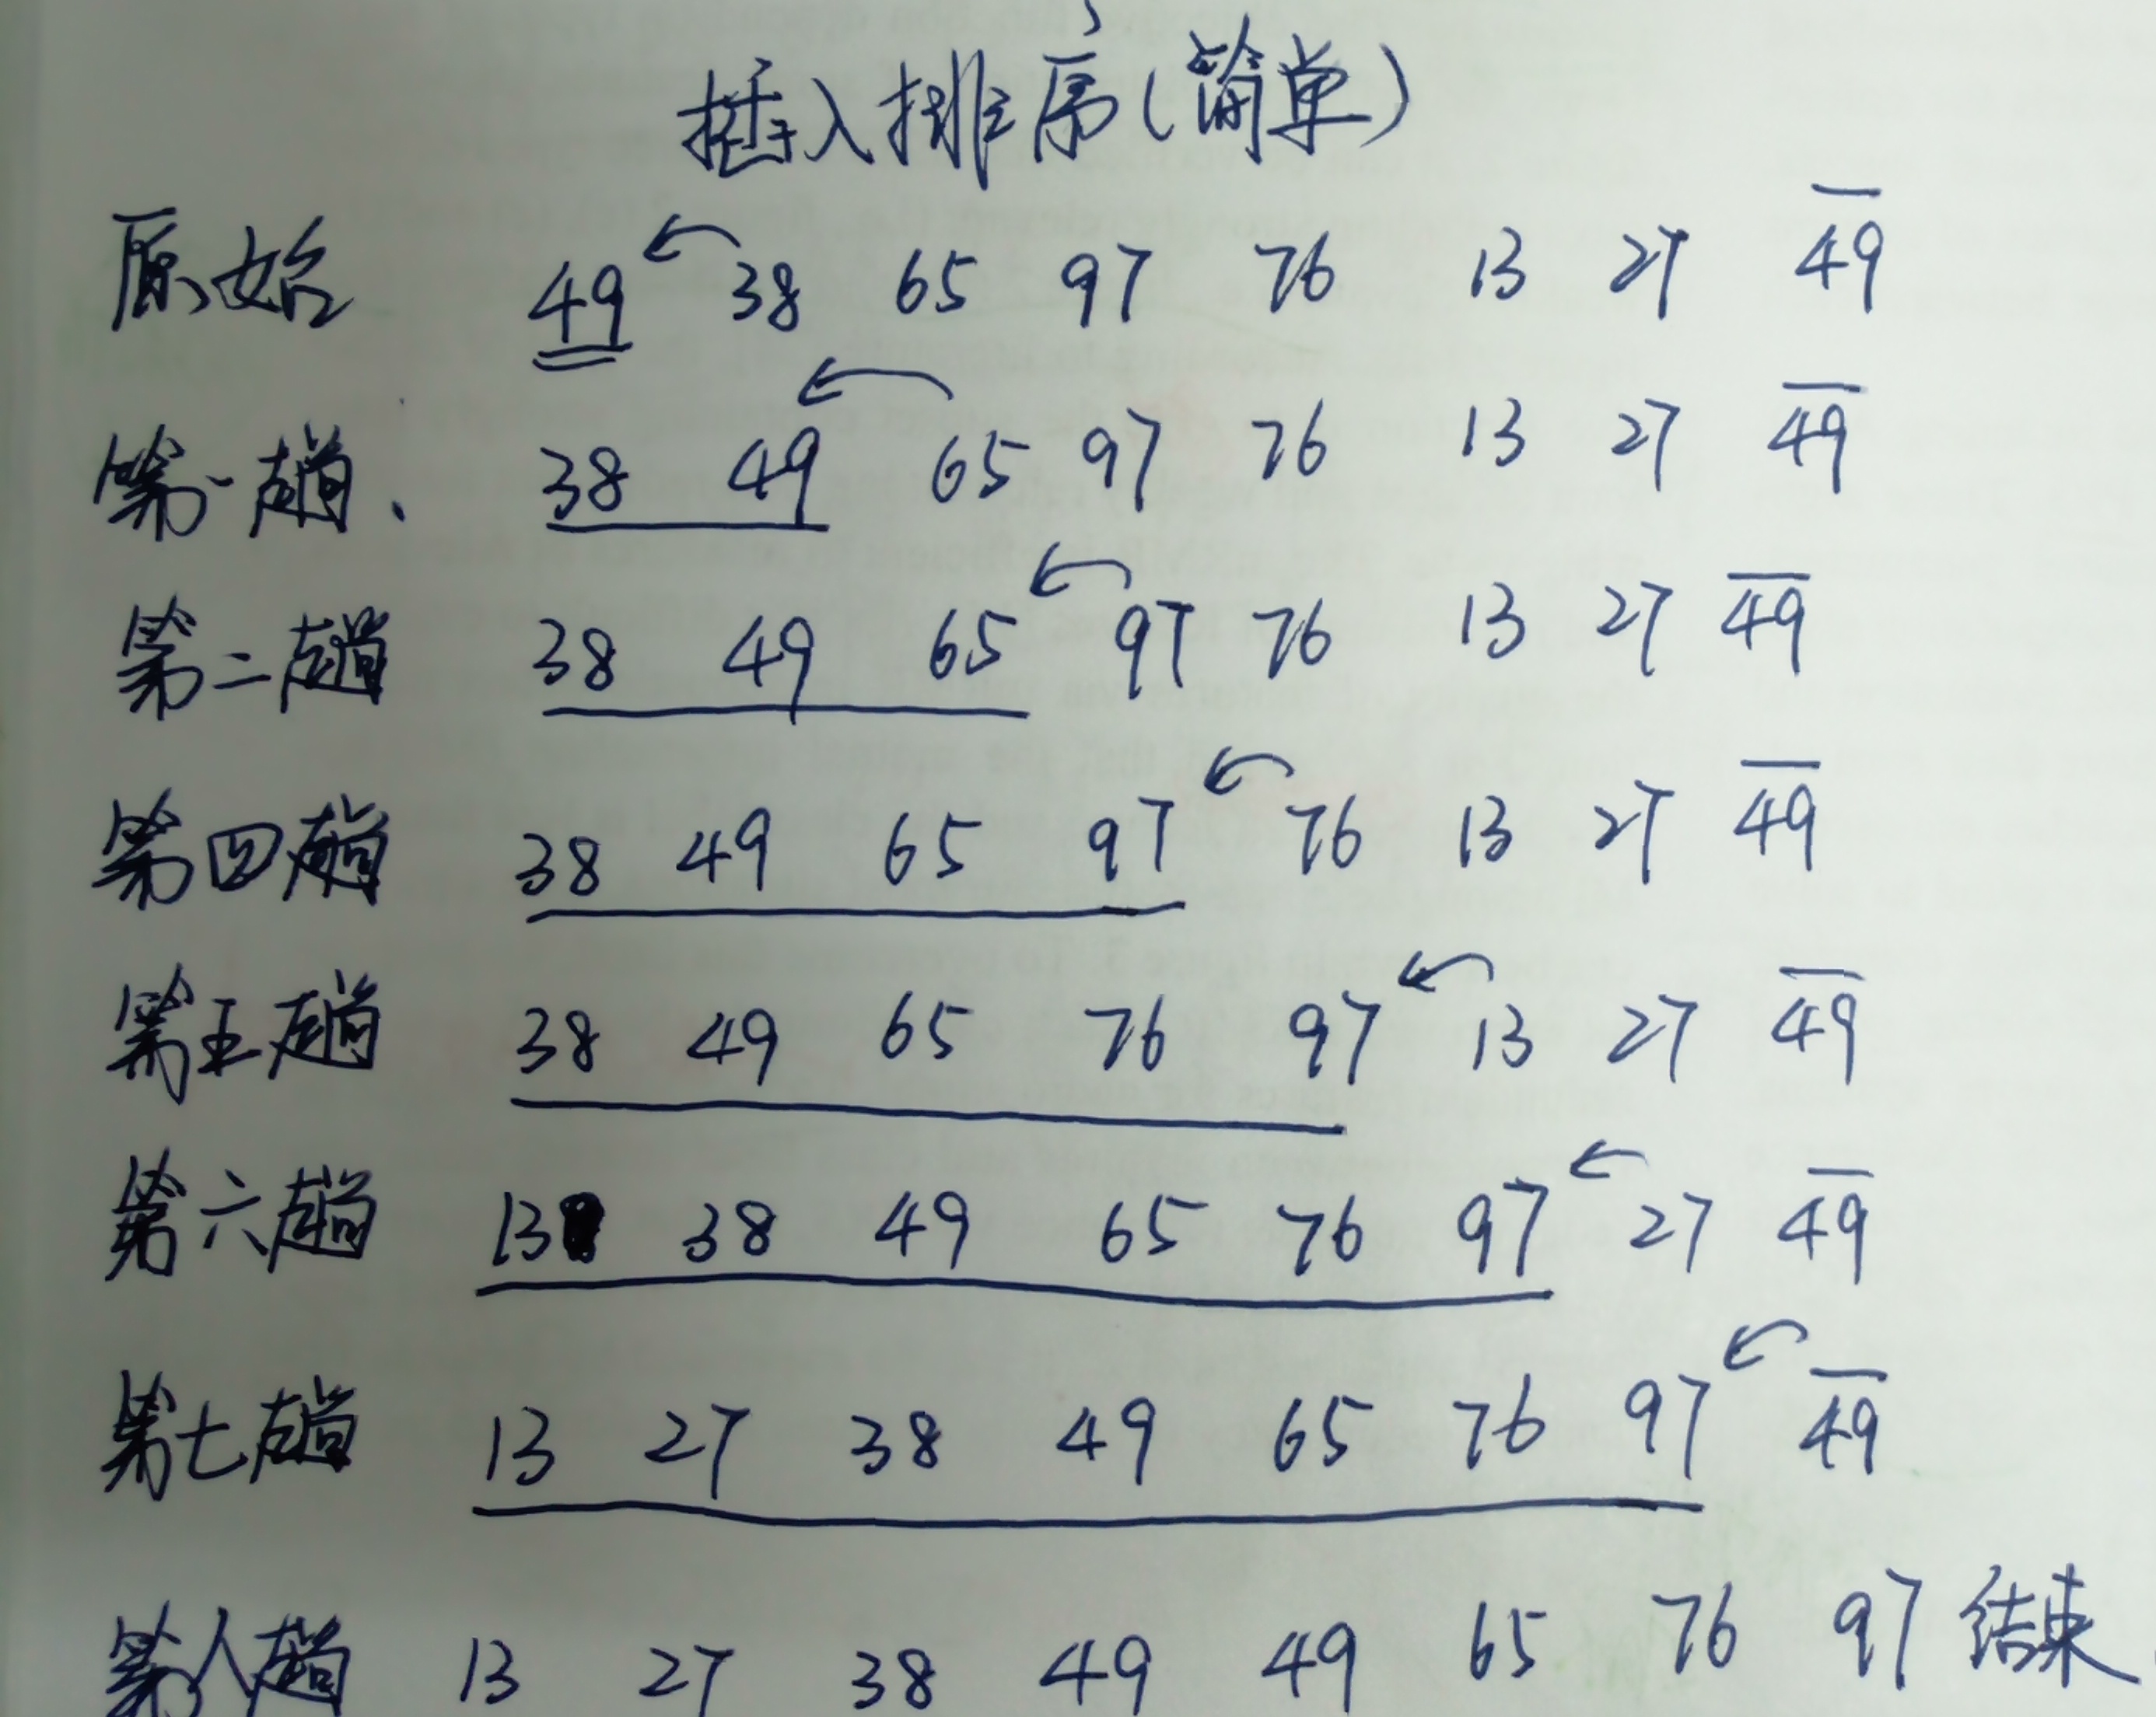 插入排序(简单)
原始 49 38 65 97 76 13 27 4̅9̅
第一趟、 38 49 65 97 76 13 27 4̅9̅
第二趟 38 49 65 97 76 13 27 4̅9̅
第四趟 38 49 65 97 76 13 27 4̅9̅
第五趟 38 49 65 76 97 13 27 4̅9̅
第六趟 13 38 49 65 76 97 27 4̅9̅
第七趟 13 27 38 49 65 76 97 4̅9̅
第八趟 13 27 38 49 49 65 76 97 结束